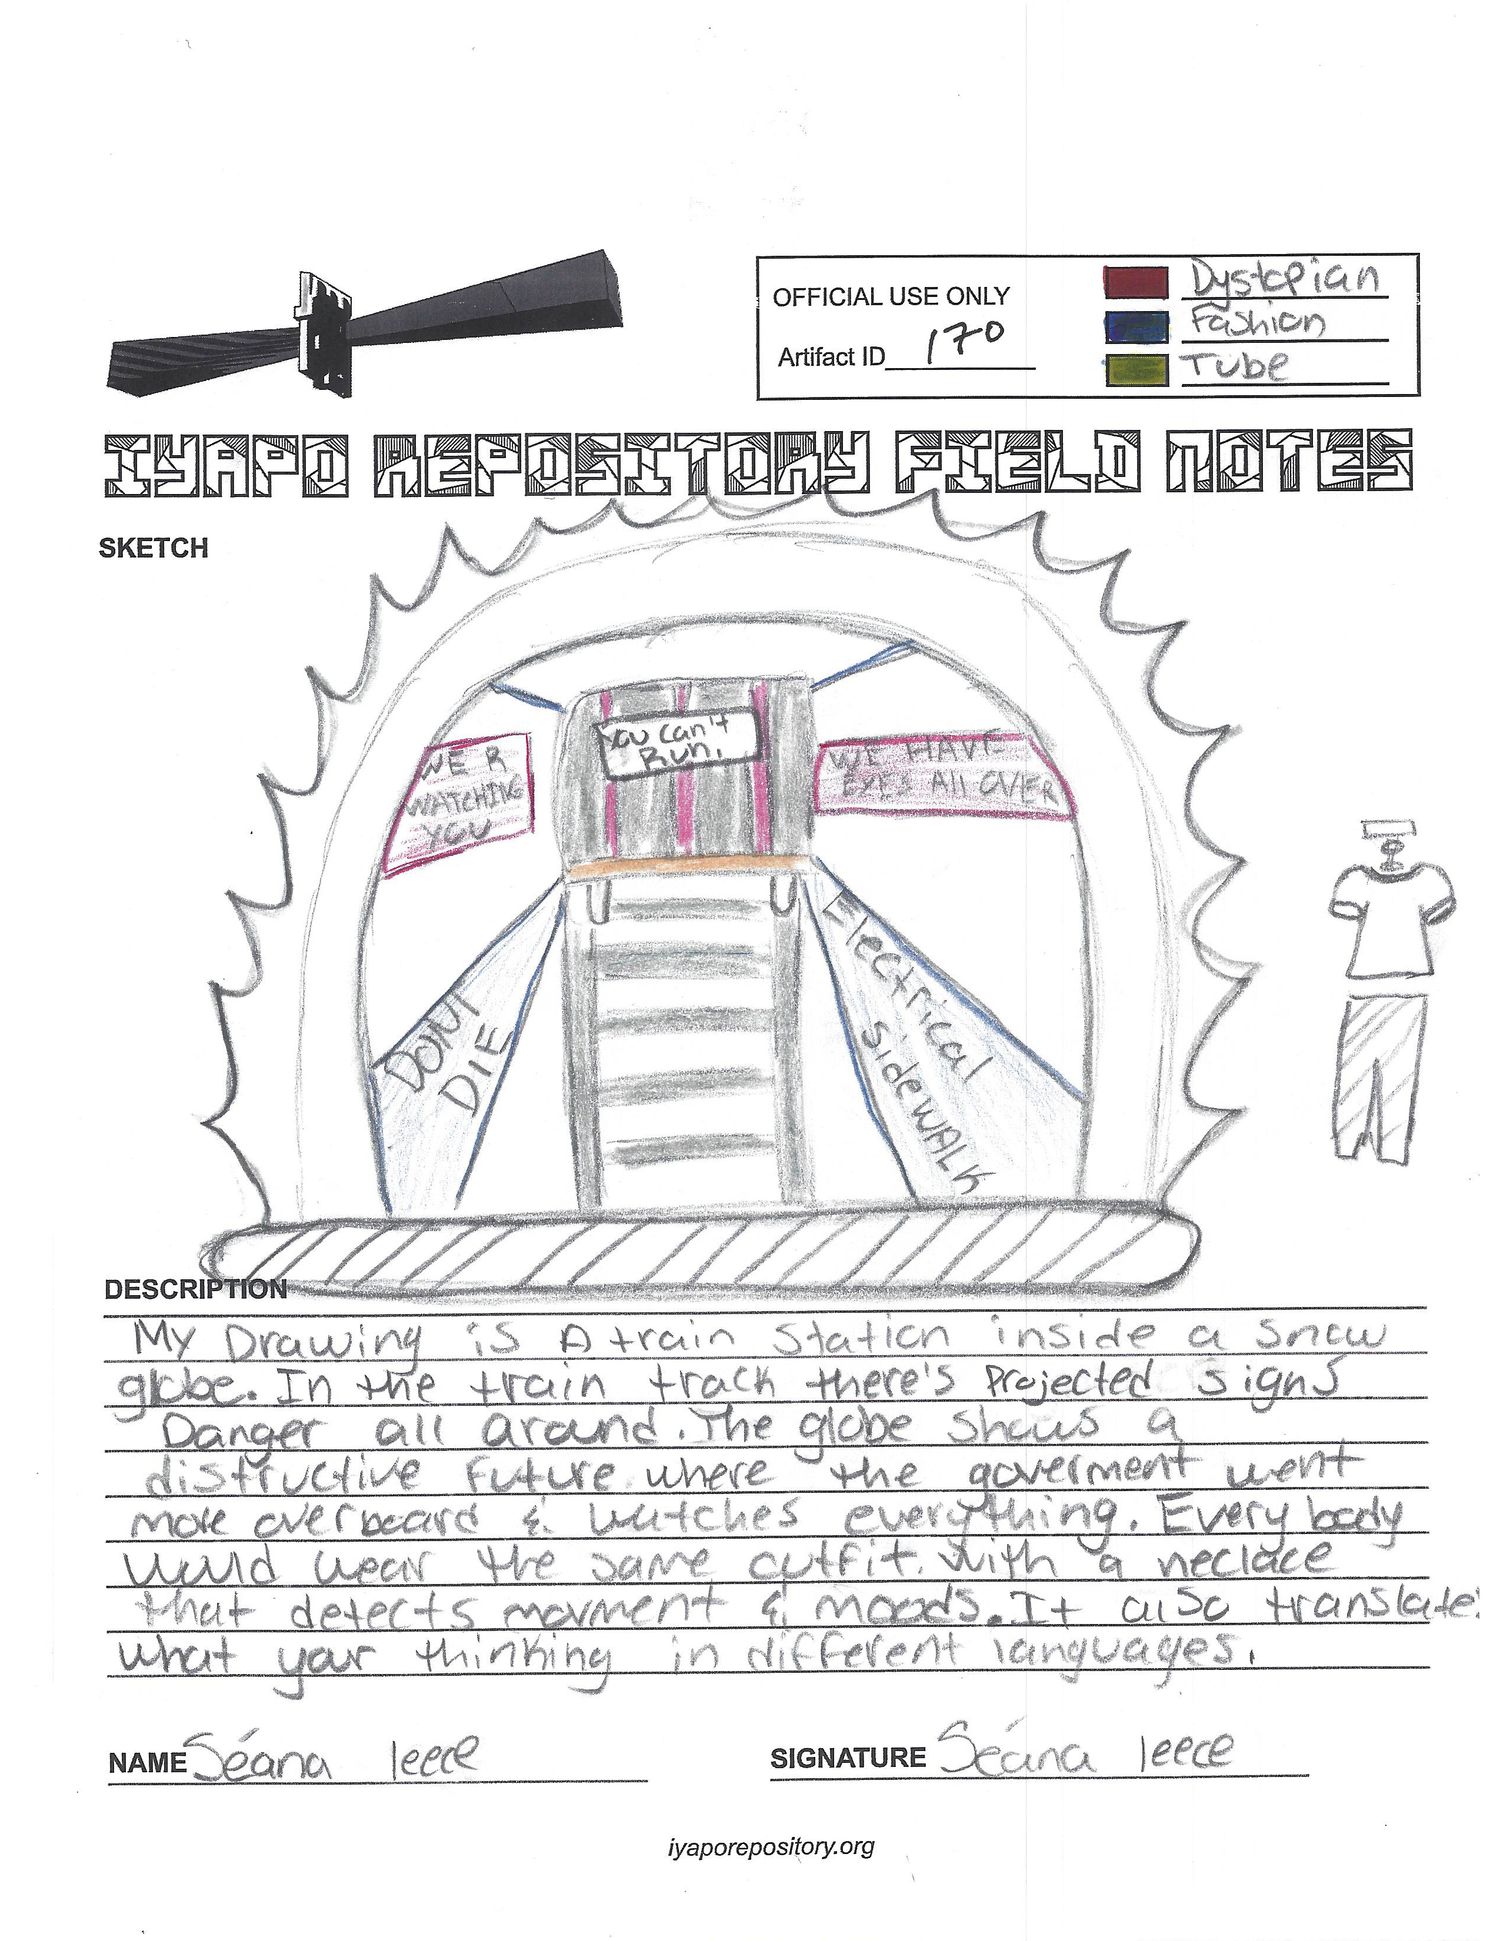 OFFICIAL USE ONLY
Artifact ID 170
Dystopian
Fashion
Tube
IYAPO REPOSITORY FIELD NOTES
SKETCH
WE R
WATCHING
YOU
You can't
Run.
WE HAVE
EYES All OVER
DONT
DIE
Electrical
sideWALK
DESCRIPTION
My Drawing is A train station inside a snow
globe. In the train track there's Projected signs
Danger all around. The globe shows a
distructive future where the goverment went
more overboard & watches everything. Every body
would wear the same outfit. With a neclace
that detects movment & moods. It also translates
what your thinking in different languages.
NAME Séana leece
SIGNATURE Séana leece
iyaporepository.org